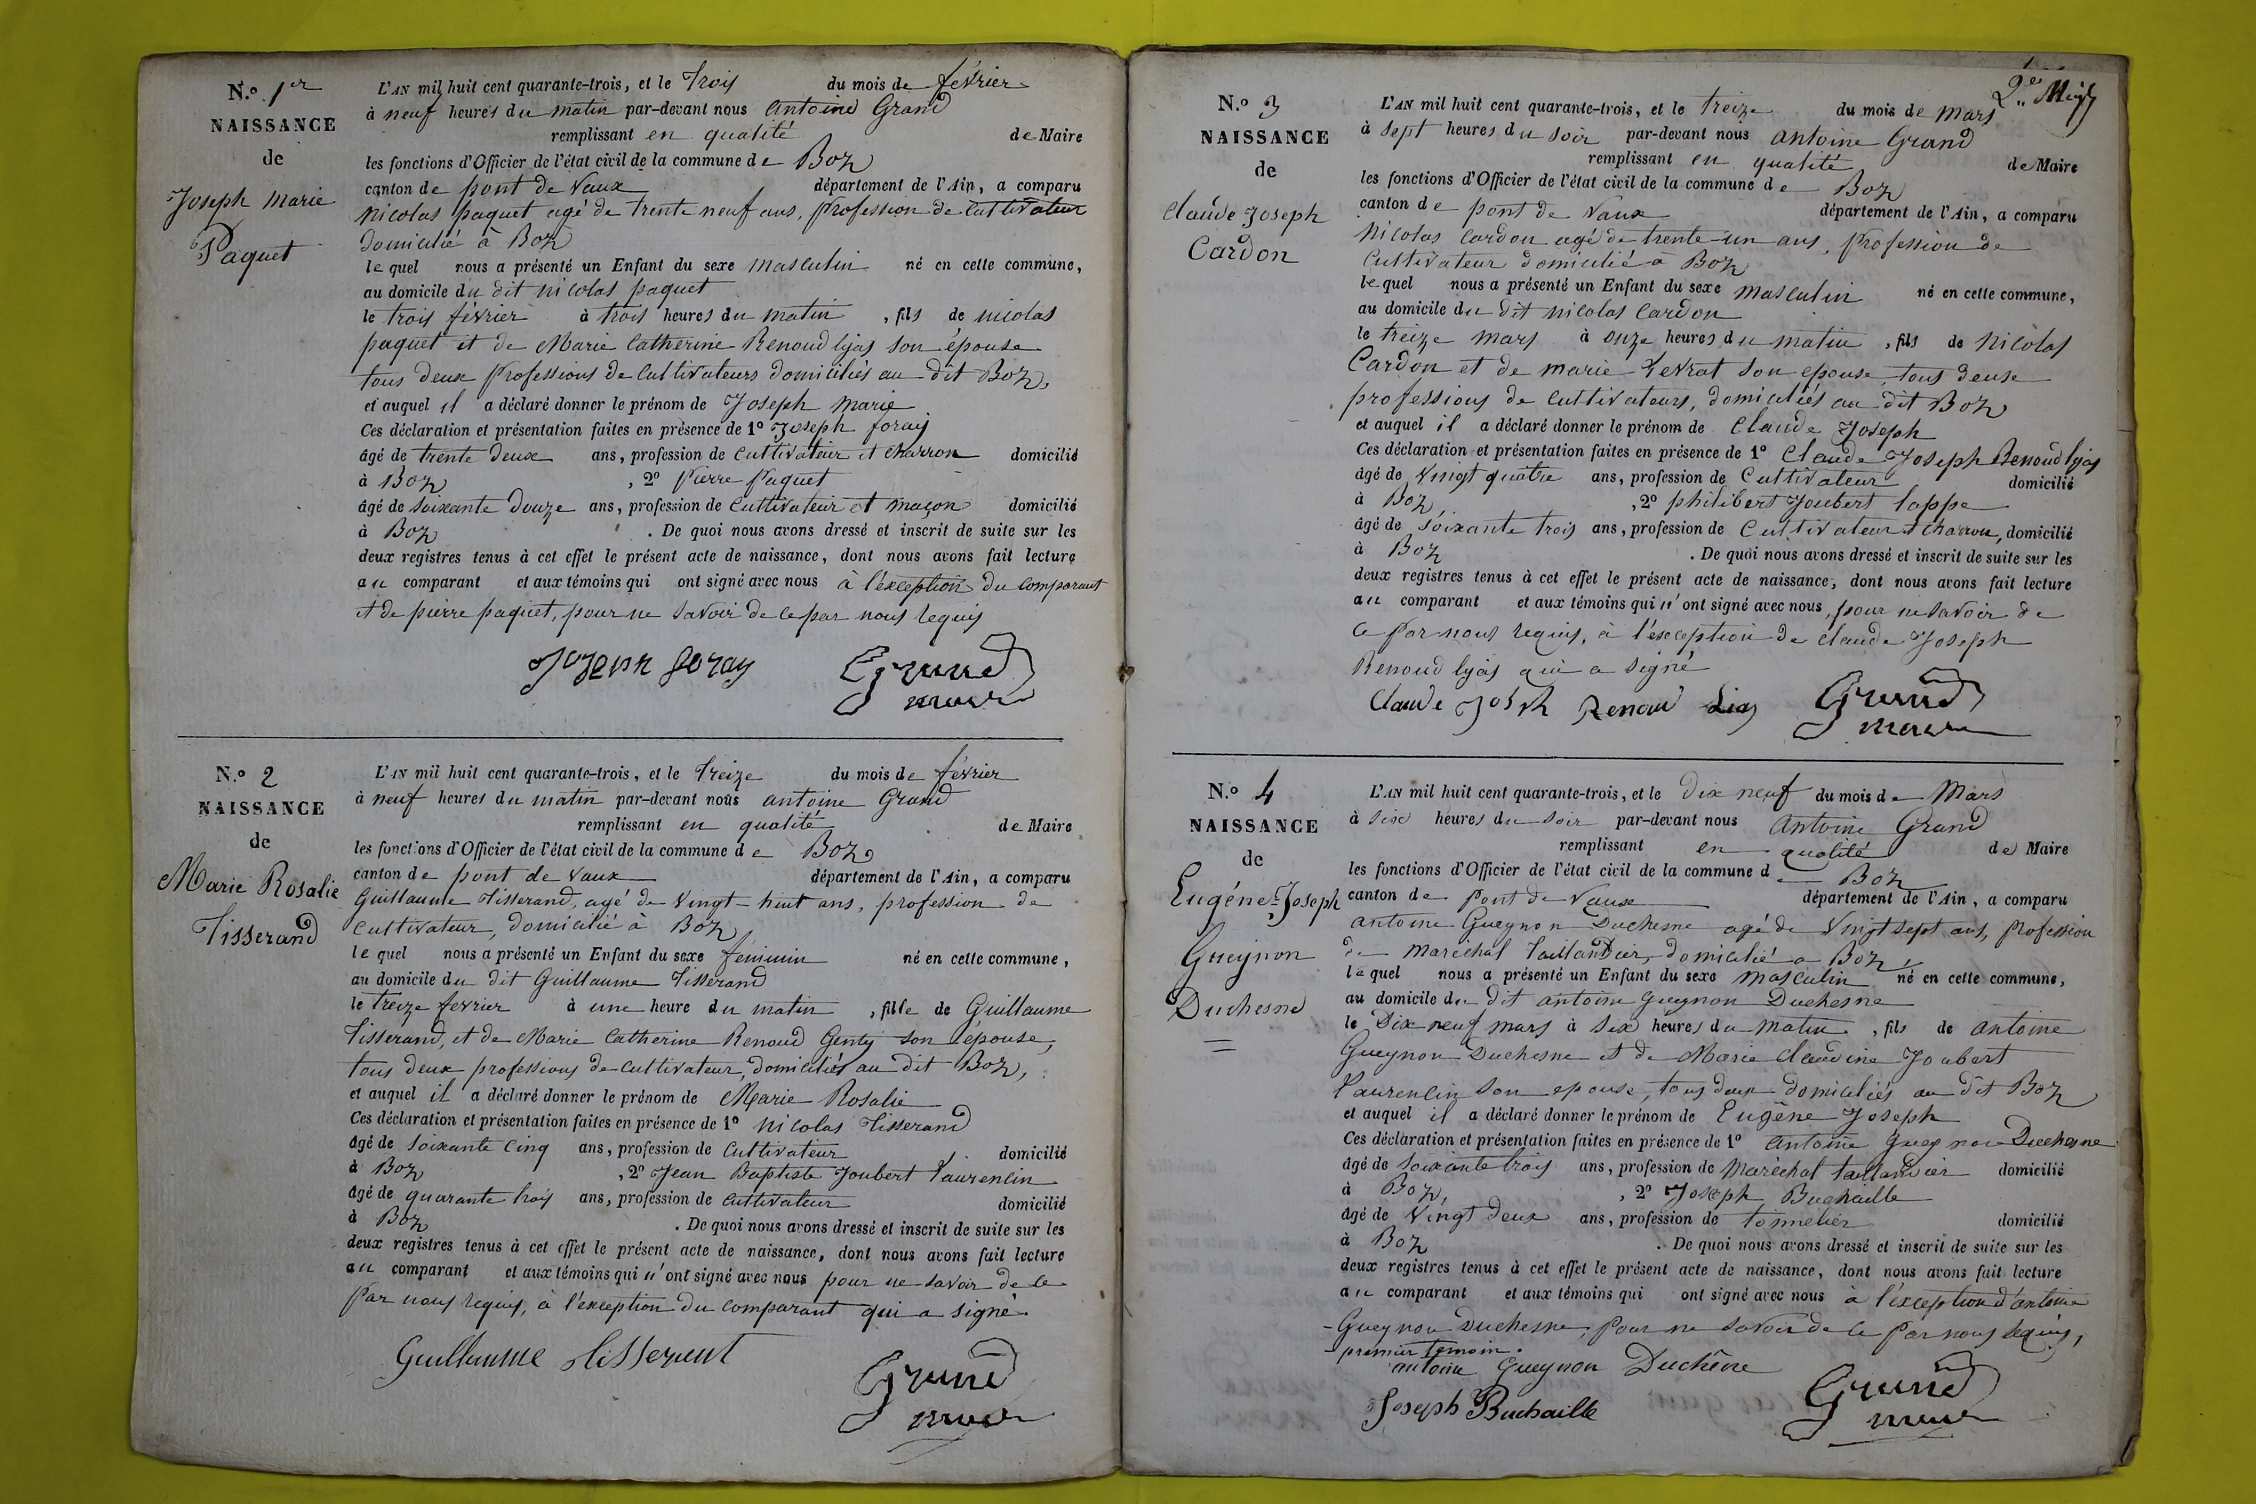 N.º 1er
NAISSANCE
de
Joseph Marie
Paquet
L'AN mil huit cent quarante-trois, et le trois du mois de février
à neuf heures du matin par-devant nous antoine Grand
remplissant en qualité de Maire
les fonctions d'Officier de l'état civil de la commune de Boz
canton de pont de Vaux département de l'Ain, a comparu
Nicolas paquet agé de trente neuf ans, profession de Cultivateur
domicilié à Boz
le quel nous a présenté un Enfant du sexe masculin né en cette commune,
au domicile du dit nicolas paquet
le trois février à trois heures du matin, fils de nicolas
paquet et de Marie Catherine Renoud lyas son épouse
tous deux professions de Cultivateurs domiciliés au dit Boz,
et auquel il a déclaré donner le prénom de Joseph Marie
Ces déclaration et présentation faites en présence de 1º Joseph foray
âgé de trente deux ans, profession de Cultivateur et charron domicilié
à Boz, 2º Pierre Paquet
âgé de soixante douze ans, profession de Cultivateur et maçon domicilié
à Boz. De quoi nous avons dressé et inscrit de suite sur les
deux registres tenus à cet effet le présent acte de naissance, dont nous avons fait lecture
au comparant et aux témoins qui ont signé avec nous à l'exception du comparant
et de pierre paquet, pour ne savoir de ce par nous requis
Joseph foray Grand
maire
N.º 2
NAISSANCE
de
Marie Rosalie
Tisserand
L'AN mil huit cent quarante-trois, et le treize du mois de février
à neuf heures du matin par-devant nous antoine Grand
remplissant en qualité de Maire
les fonctions d'Officier de l'état civil de la commune de Boz
canton de pont de Vaux département de l'Ain, a comparu
Guillaume Tisserand, agé de Vingt-huit ans, profession de
cultivateur, domicilié à Boz
le quel nous a présenté un Enfant du sexe féminin né en cette commune,
au domicile du dit Guillaume Tisserand
le treize février à une heure du matin, fille de Guillaume
Tisserand, et de Marie Catherine Renoud Genty son épouse,
tous deux professions de cultivateur, domiciliés au dit Boz,
et auquel il a déclaré donner le prénom de Marie Rosalie
Ces déclaration et présentation faites en présence de 1º Nicolas Tisserand
âgé de soixante cinq ans, profession de Cultivateur domicilié
à Boz, 2º Jean Baptiste Joubert Laurencin
âgé de quarante trois ans, profession de cultivateur domicilié
à Boz. De quoi nous avons dressé et inscrit de suite sur les
deux registres tenus à cet effet le présent acte de naissance, dont nous avons fait lecture
au comparant et aux témoins qui n'ont signé avec nous pour ne savoir de ce
par nous requis, à l'exception du comparant qui a signé
Guillaume tisserent Grand
maire
2e
N.º 3
NAISSANCE
de
Claude Joseph
Cardon
L'AN mil huit cent quarante-trois, et le treize du mois de mars
à sept heures du soir par-devant nous antoine Grand
remplissant en qualité de Maire
les fonctions d'Officier de l'état civil de la commune de Boz
canton de pont de Vaux département de l'Ain, a comparu
Nicolas Cardon agé de trente-un ans, profession de
Cultivateur domicilié à Boz
le quel nous a présenté un Enfant du sexe masculin né en cette commune,
au domicile du dit nicolas Cardon
le treize mars à onze heures du matin, fils de Nicolas
Cardon et de marie Levrat son epouse, tous deux
professions de cultivateurs, domiciliés au dit Boz
et auquel il a déclaré donner le prénom de Claude Joseph
Ces déclaration et présentation faites en présence de 1º Claude Joseph Renoud lyas
âgé de Vingt quatre ans, profession de Cultivateur domicilié
à Boz, 2º philibert Joubert lappe
âgé de soixante trois ans, profession de Cultivateur et charron, domicilié
à Boz. De quoi nous avons dressé et inscrit de suite sur les
deux registres tenus à cet effet le présent acte de naissance, dont nous avons fait lecture
au comparant et aux témoins qui n'ont signé avec nous, pour ne savoir de
ce par nous requis, à l'exception de Claude Joseph
Renoud lyas qui a signé
Claude Joseh Renoud Lias Grand
maire
N.º 4
NAISSANCE
de
Eugéne-Joseph
Gueynon
Duchesne
L'AN mil huit cent quarante-trois, et le dix neuf du mois de Mars
à six heures du soir par-devant nous Antoine Grand
remplissant en qualité de Maire
les fonctions d'Officier de l'état civil de la commune d Boz
canton de pont de Vaux département de l'Ain, a comparu
antoine Gueynon Duchesne agé de Vingt sept ans, profession
de maréchal taillandier, domicilié a Boz,
le quel nous a présenté un Enfant du sexe masculin né en cette commune,
au domicile du dit antoine gueynon Duchesne
le Dix neuf mars à six heures du matin, fils de antoine
Gueynon Duchesne et de Marie Claudine Joubert
Laurencin son epouse, tous deux domiciliés au dit Boz
et auquel il a déclaré donner le prénom de Eugène Joseph
Ces déclaration et présentation faites en présence de 1º antoine gueynon Duchesne
âgé de soixante trois ans, profession de Maréchal taillandier domicilié
à Boz, 2º Joseph Buchaille
âgé de Vingt deux ans, profession de tonnelier domicilié
à Boz. De quoi nous avons dressé et inscrit de suite sur les
deux registres tenus à cet effet le présent acte de naissance, dont nous avons fait lecture
au comparant et aux témoins qui ont signé avec nous à l'exception d'antoine
Gueynon Duchesne, pour ne savoir de ce par nous requis,
premier temoin.
antoine Gueynon Duchêne Grand
Joseph Buchaille maire